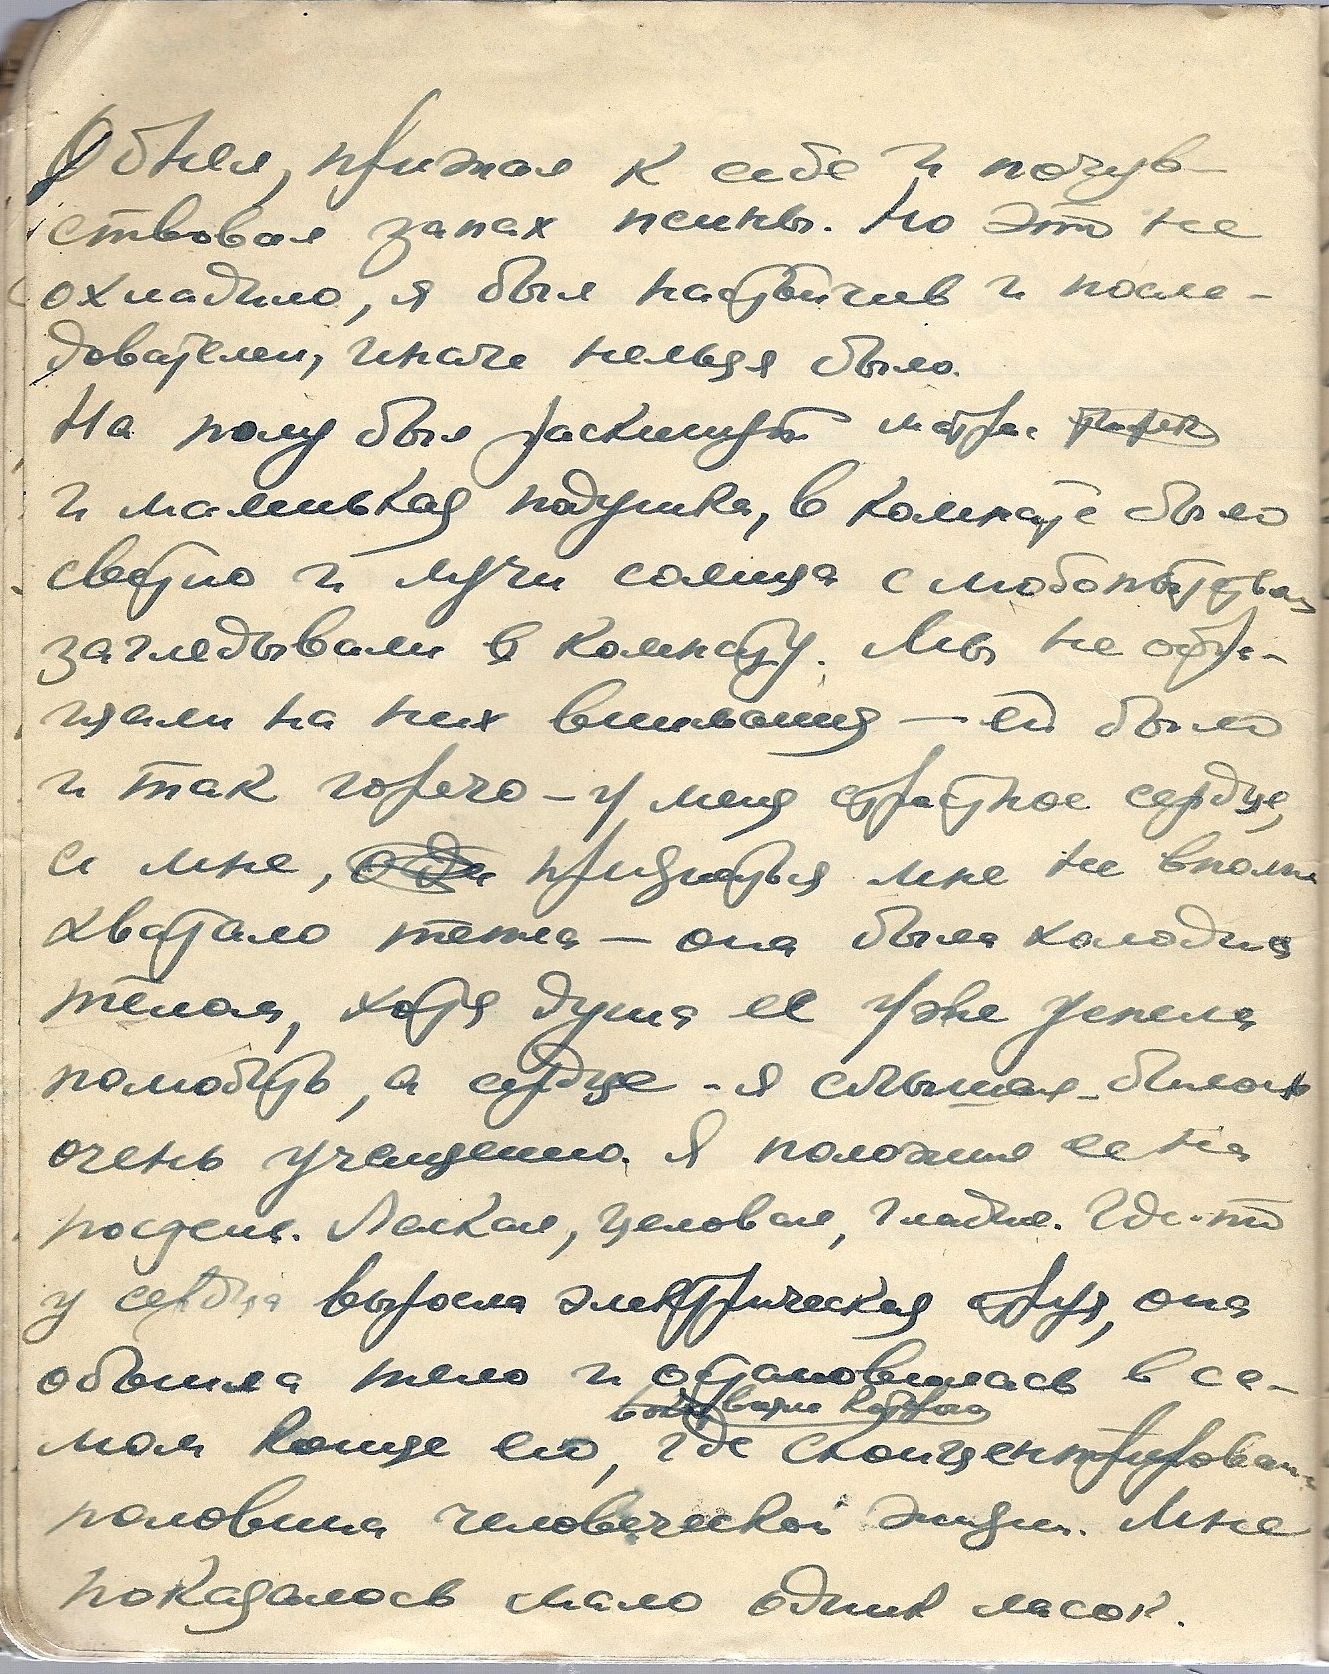 Обнял, прижал к себе и почув-
ствовал запах псины. Но это не
охладило, я был настойчив и после-
дователен, иначе нельзя было.
На полу был раскинут матрас
и маленькая подушка, в комнате было
светло и лучи солнца с любопытством
заглядывали в комнату. Мы не обра-
щали на них внимания — ей было
и так горячо — у меня страстное сердце,
а мне, признаться мне не вполне
хватало тепла — она была холодна
телом, хотя душа ее уже успела
полюбить, а сердце - я слышал - билось
очень учащенно. Я положил ее на
постель. Ласкал, целовал, гладил. Где-то
у сердца выросла электрическая струя, она
обошла тело и остановилась в са-
мом конце его, где сконцентрирована
половина человеческой жизни. Мне
показалось мало одних ласок.